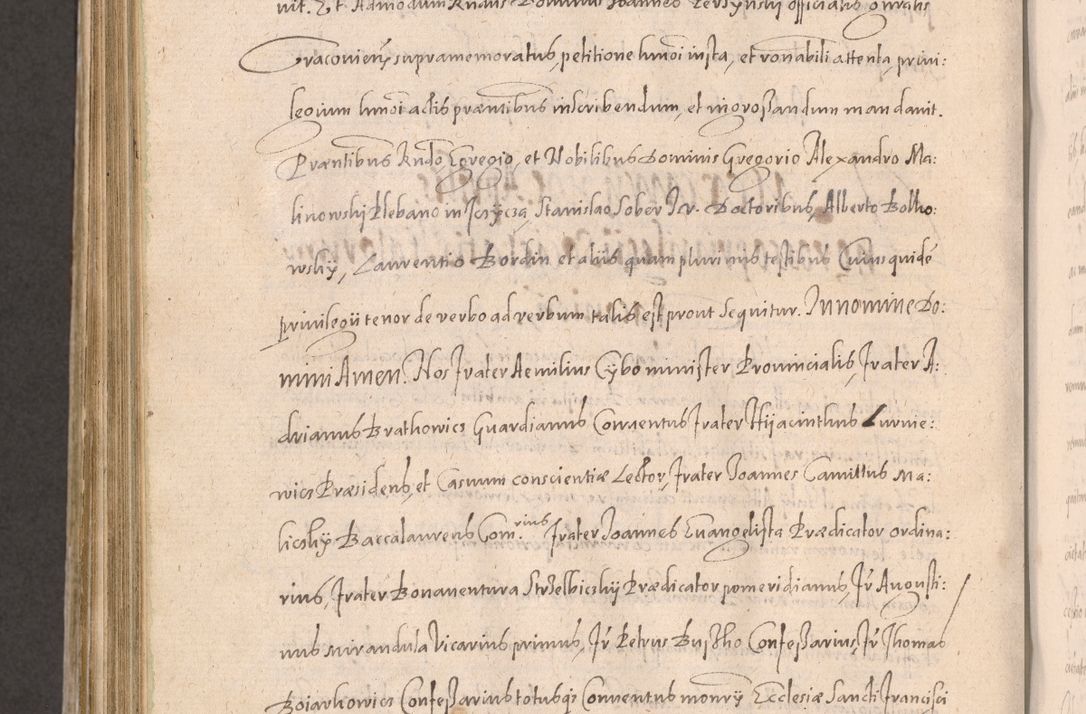 uit. Et Admodum Rndus Dominus Joannes Tersynskj officialis gnralis
Cracouien supramemoratus, petitione hmoi iusta, et ronabili attenta, priui:
legium hmoi actis præntibus inscribendum, et ingrossandum mandauit.
Præntibus Rndo Egregio, et Nobilibus Dominis Gregorio Alexandro Ma:
linowskij Plebano in Stanislao Sober Doctoribus, Alberto Bolho:
wskij, Laurentio Bordin et aliis quam plurimis testibus Cuius quidē
priuilegii tenor de verbo ad verbum talis est prout sequitur. In nomine Do:
mini Amen. Nos frater Aemilius Cybo minister Prouincialis, frater A:
drianus Brathowicz Guardianus Conuentus frater Hijacinthus Lurvie:
wicz Præsidens, et Casuum conscientiæ Lector, frater Joannes Camillus Ma:
licskij Baccalaureus Com.rius frater Joannes Euangelista Prædicator ordina:
rius, frater Bonauentura Strzelbiczkij Prædicator pomeridianus, Fr Augusti:
nus mirandula Vicarius primus, Fr Petrus Bustho Confessarius, Fr Thomas
Boiarkowicz Confessarius totusq; Conuentus monrij Ecclesiæ Sancti Francisci